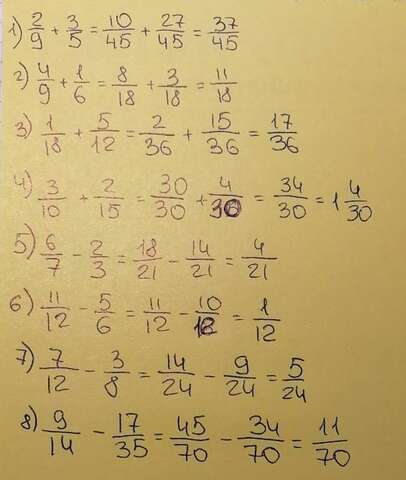 1) 2/9 + 3/5 = 10/45 + 27/45 = 37/45
2) 4/9 + 1/6 = 8/18 + 3/18 = 11/18
3) 1/18 + 5/12 = 2/36 + 15/36 = 17/36
4) 3/10 + 2/15 = 30/30 + 4/30 = 34/30 = 1 4/30
5) 6/7 - 2/3 = 18/21 - 14/21 = 4/21
6) 11/12 - 5/6 = 11/12 - 10/12 = 1/12
7) 7/12 - 3/8 = 14/24 - 9/24 = 5/24
8) 9/14 - 17/35 = 45/70 - 34/70 = 11/70